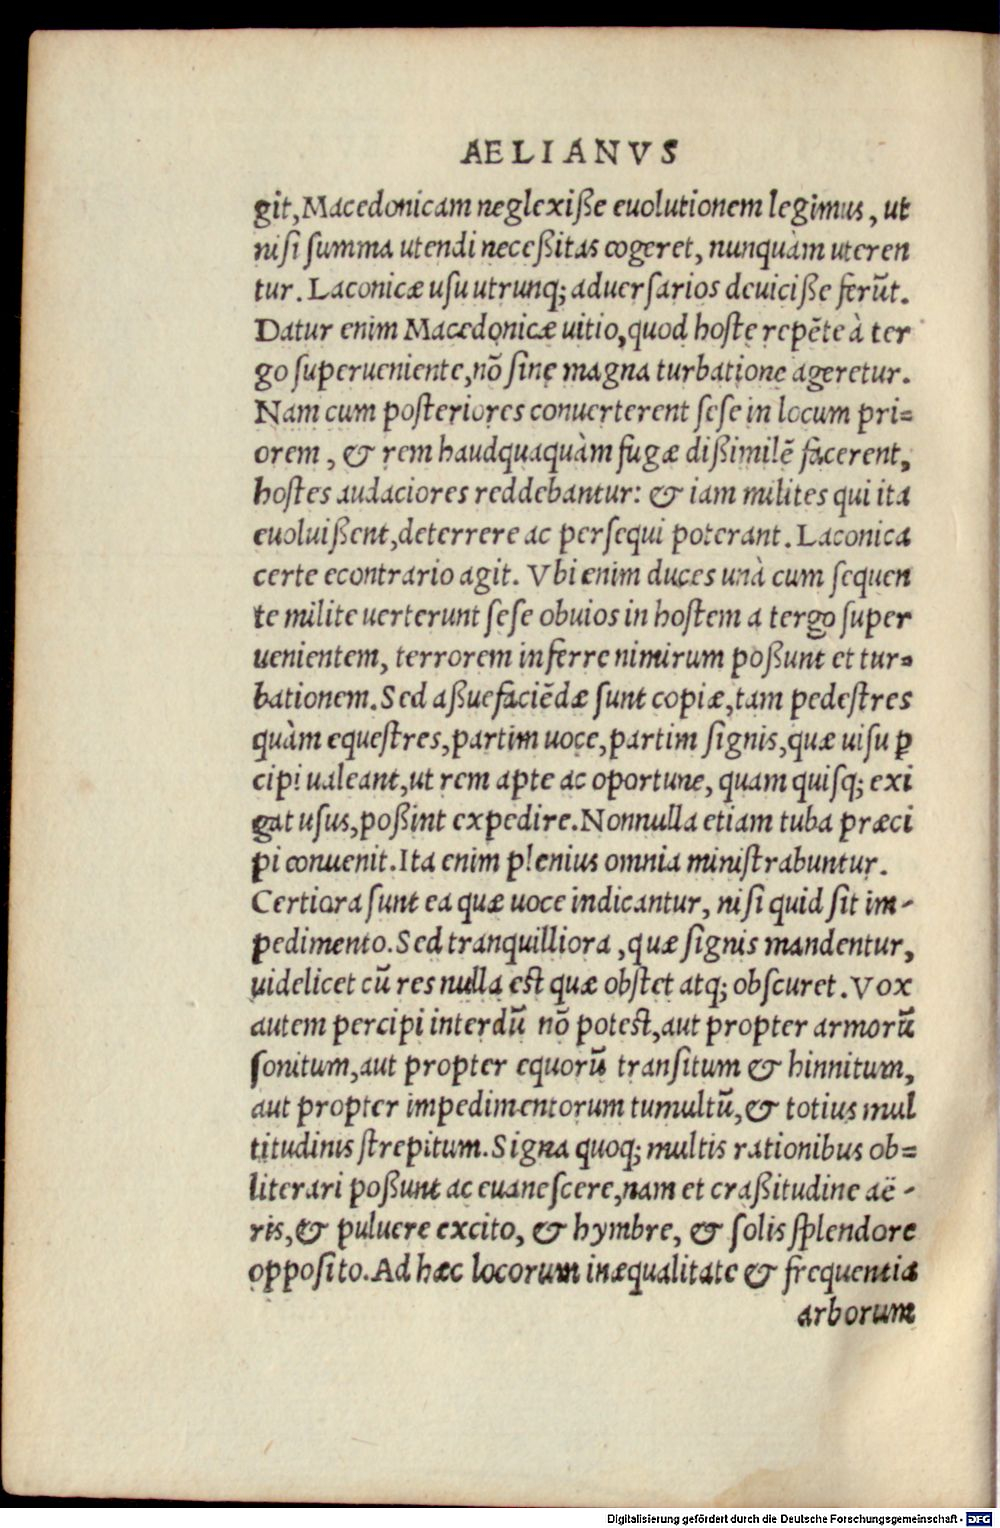 AELIANVS
git, Macedonicam neglexiße euolutionem legimus, ut
nisi summa utendi neceßitas cogeret, nunquàm uteren
tur. Laconicæ usu utrunq; aduersarios deuiciße ferūt.
Datur enim Macedonicæ uitio, quod hoste repēte à ter
go superueniente, nō sine magna turbatione ageretur.
Nam cum posteriores conuerterent sese in locum pri=
orem, & rem haudquaquàm fugæ dißimilē facerent,
hostes audaciores reddebantur: & iam milites qui ita
euoluißent, deterrere ac persequi poterant. Laconica
certe econtrario agit. Vbi enim duces unà cum sequen
te milite uerterunt sese obuios in hostem a tergo super
uenientem, terrorem inferre nimirum poßunt et tur=
bationem. Sed aßuefaciēdæ sunt copiæ, tam pedestres
quàm equestres, partim uoce, partim signis, quæ uisu ꝑ
cipi ualeant, ut rem apte ac oportune, quam quisq; exi
gat usus, poßint expedire. Nonnulla etiam tuba præci
pi conuenit. Ita enim plenius omnia ministrabuntur.
Certiora sunt ea quæ uoce indicantur, nisi quid sit im-
pedimento. Sed tranquilliora, quæ signis mandentur,
uidelicet cū res nulla est quæ obstet atq; obscuret. Vox
autem percipi interdū nō potest, aut propter armorū
sonitum, aut propter equorū transitum & hinnitum,
aut propter impedimentorum tumultū, & totius mul
titudinis strepitum. Signa quoq; multis rationibus ob=
literari poßunt ac euanescere, nam et craßitudine aë-
ris, & puluere excito, & hymbre, & solis splendore
opposito. Ad hæc locorum inæqualitate & frequentia
arborum
Digitalisierung gefördert durch die Deutsche Forschungsgemeinschaft - DFG